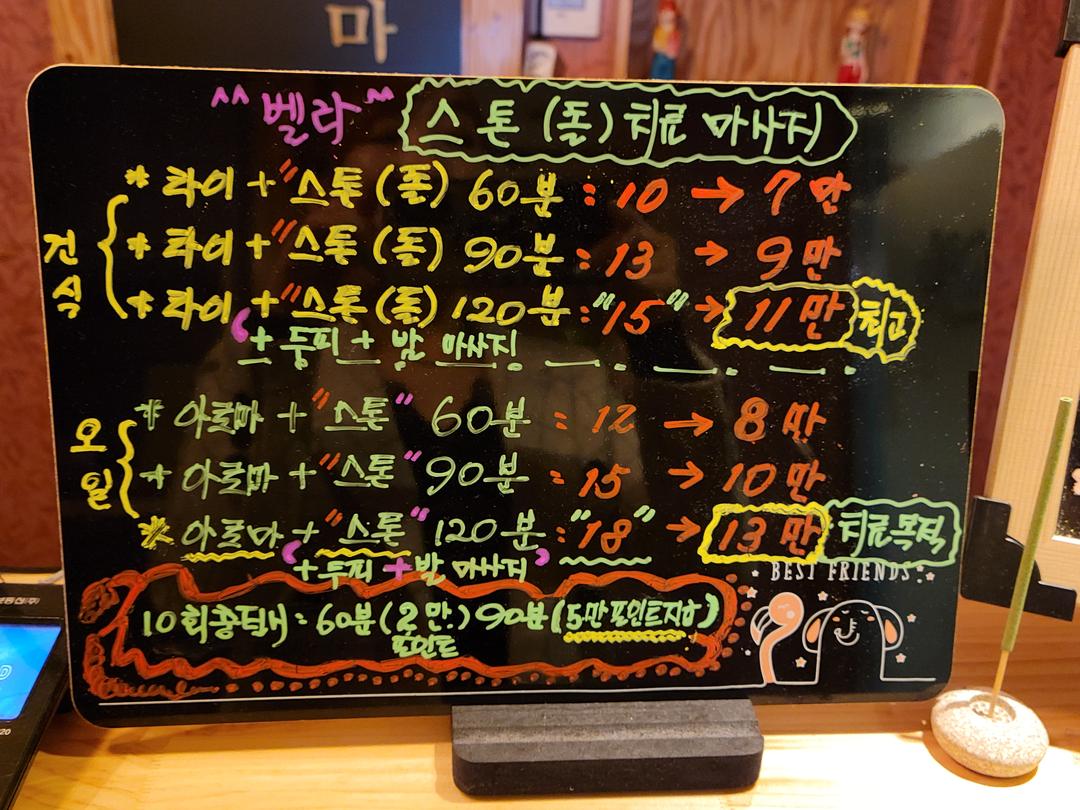 마
^^ 벨라 ^^ 스톤 (돌) 치료 마사지
건식
* 타이 + "스톤 (돌) 60분 : 10 → 7만
* 타이 + "스톤 (돌) 90분 : 13 → 9만
* 타이 + "스톤 (돌) 120분 : "15" → 11만 최고
+ 두피 + 발 마사지
오일
* 아로마 + "스톤" 60분 : 12 → 8만
+ 아로마 + "스톤" 90분 : 15 → 10만
* 아로마 + "스톤" 120분 : "18" → 13만 치료목적
+ 두피 + 발 마사지
BEST FRIENDS
10회 충전시 : 60분 (2만) 90분 (5만포인트지급)
포인트